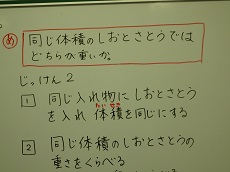 め 同じ体積のしおとさとうでは
どちらが重いか。
じっけん2
1 同じ入れ物にしおとさとう
を入れ 体積を同じにする
2 同じ体積のしおとさとうの
重さをくらべる